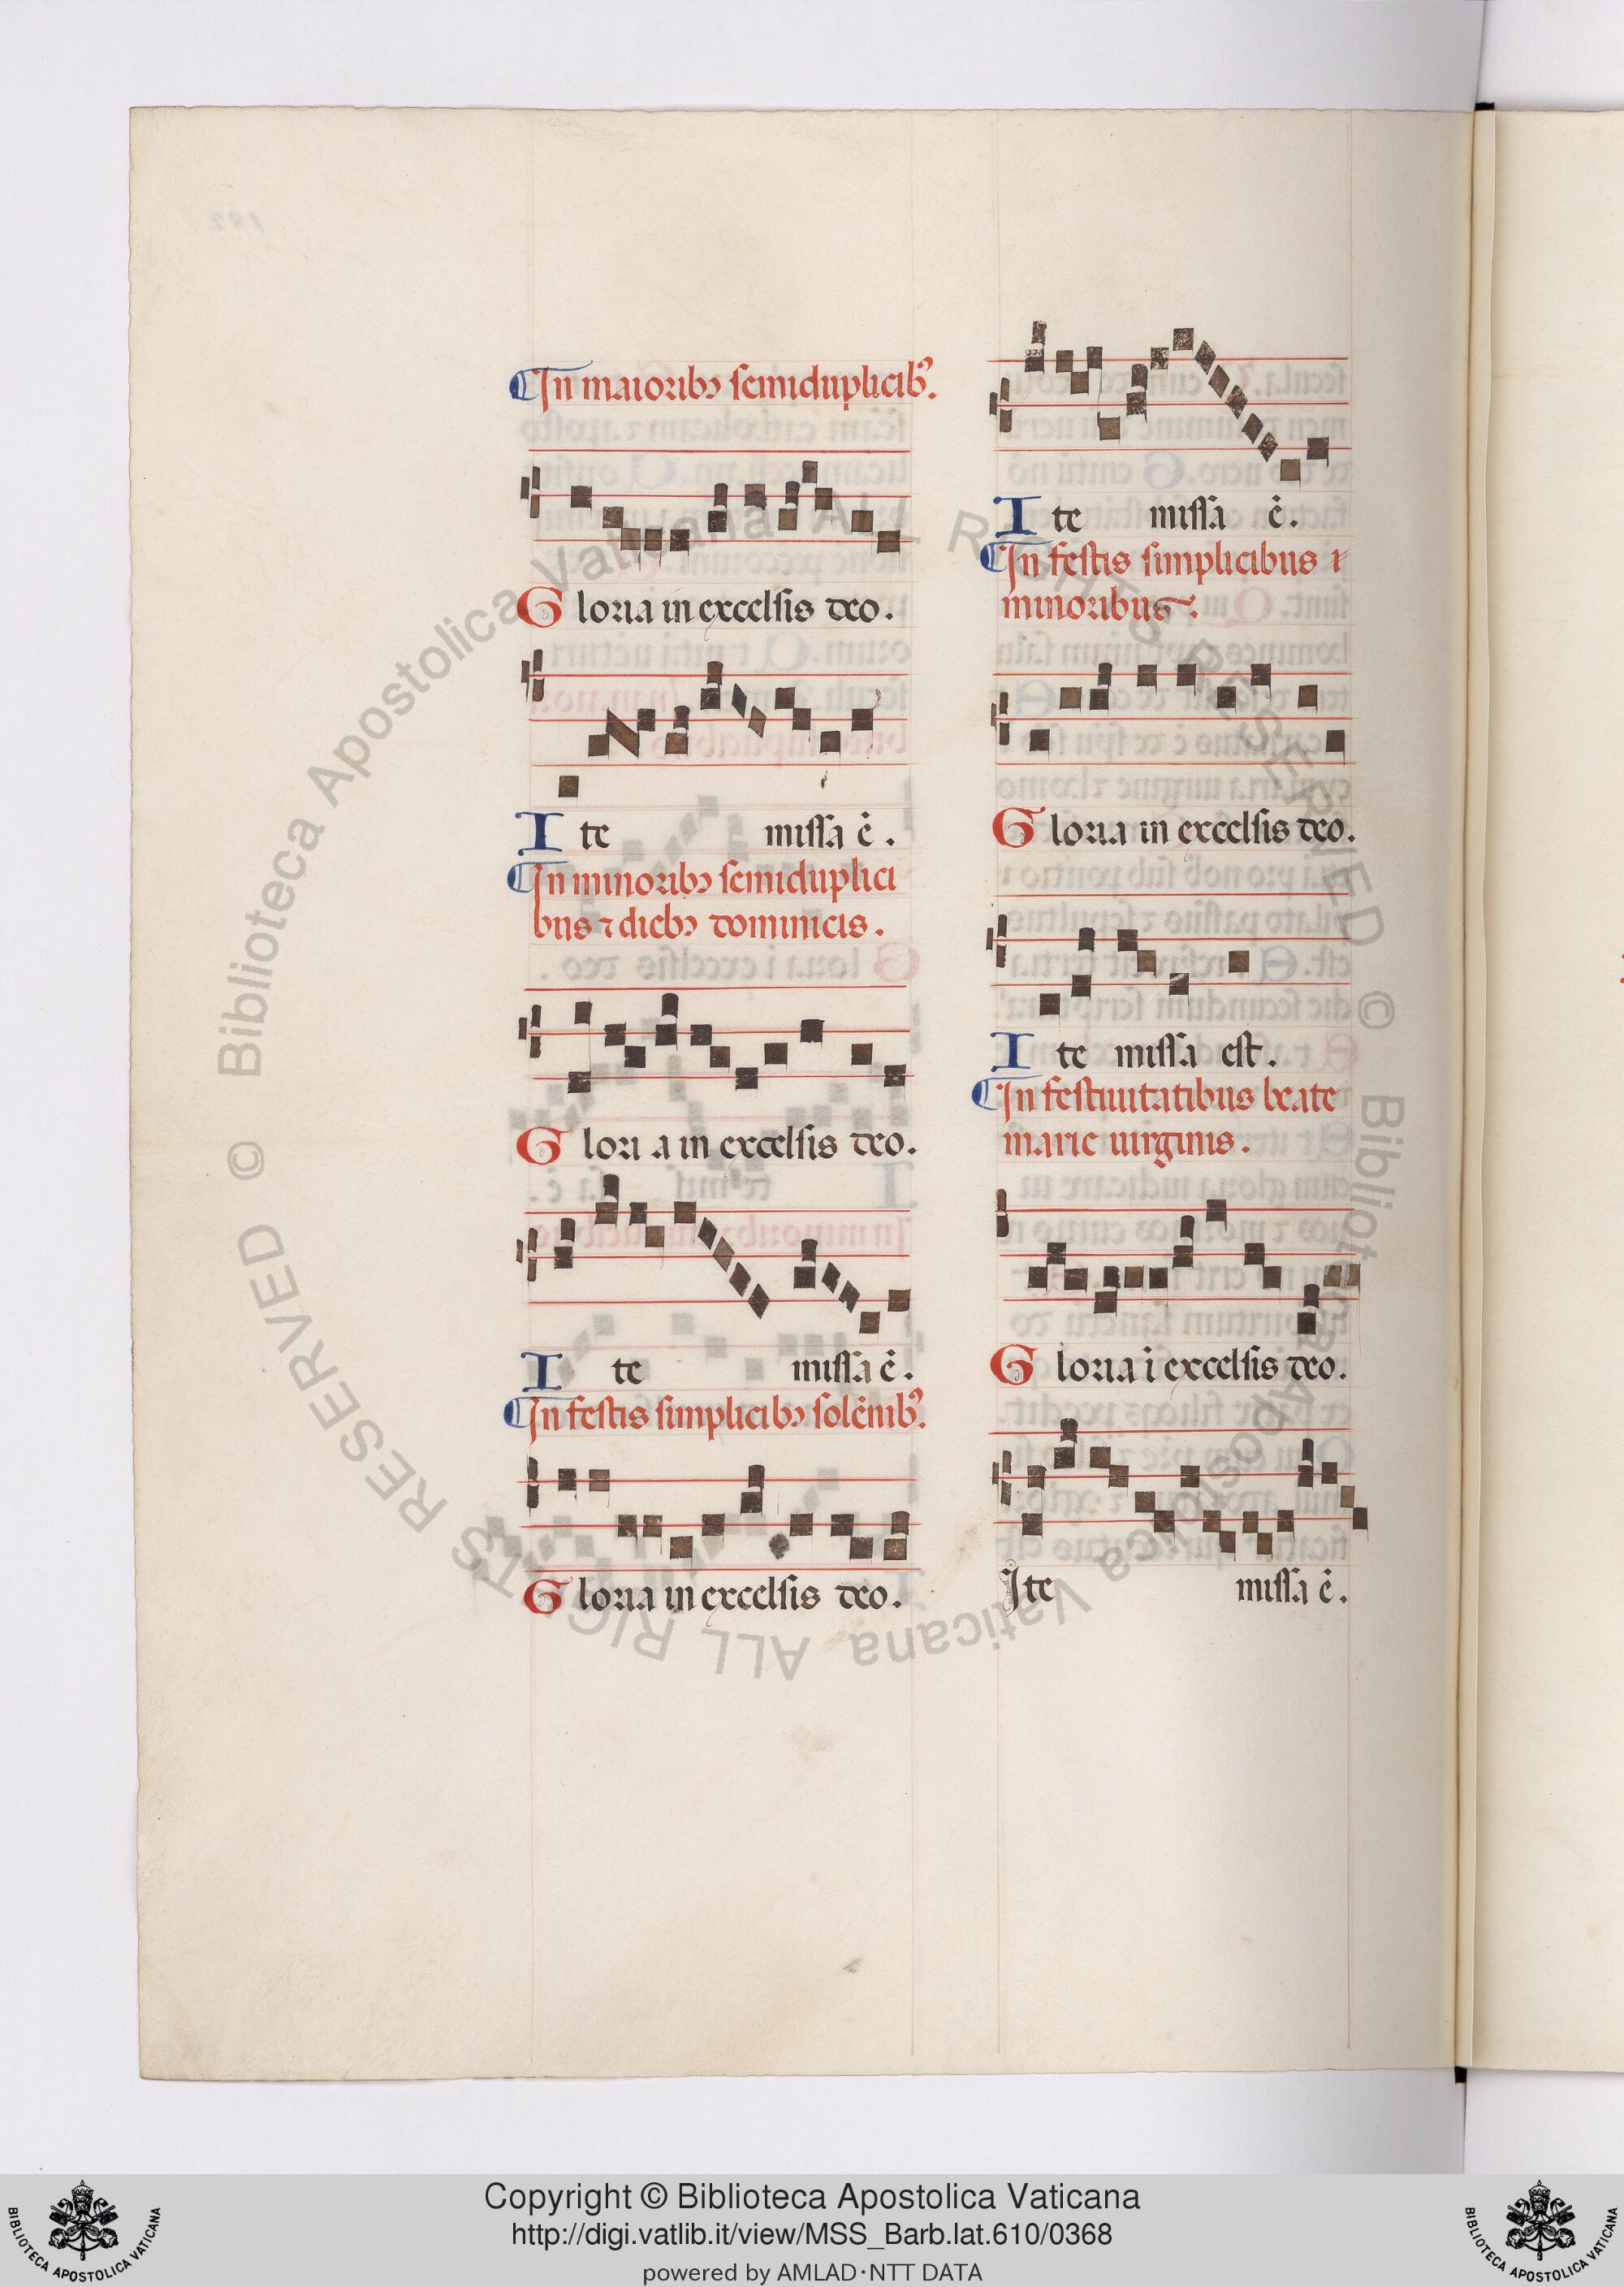 In maioribꝫ semiduplicibꝰ.
Gloria in excelsis deo.
I te missa ē.
In minoribꝫ semiduplici
bus ⁊ diebꝫ dominicis.
Glori a in excelsis deo.
I te missa ē.
In festis simplicibꝫ solēnibꝰ.
Gloria in excelsis deo.
I te missa ē.
In festis simplicibus ⁊
minoribus.
Gloria in excelsis deo.
I te missa est.
In festiuitatibus beate
marie uirginis.
Gloria ī excelsis deo.
Ite missa ē.
© Biblioteca Apostolica Vaticana ALL RIGHTS RESERVED © Biblioteca Apostolica Vaticana ALL RIGHTS RESERVED
Copyright © Biblioteca Apostolica Vaticana
http://digi.vatlib.it/view/MSS_Barb.lat.610/0368
powered by AMLAD·NTT DATA
BIBLIOTECA APOSTOLICA VATICANA
BIBLIOTECA APOSTOLICA VATICANA